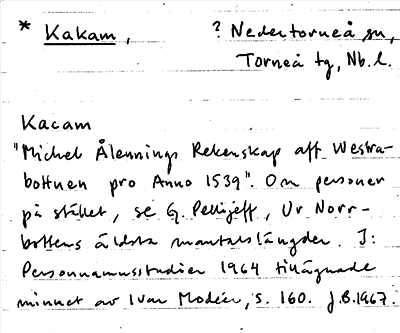 * Kakam, ? Nedertorneå sn,
Torneå tg, Nb.l.
Kacam
"Michel Ålennings Rekenskap aff Westra-
bottnen pro Anno 1539". Om personer
på stället, se G. Pellijeff, Ur Norr-
bottens äldsta mantalslängder. I:
Personnamnsstudier 1964 tillägnade
minnet av Ivar Modéer, s. 160. J.B. 1967.